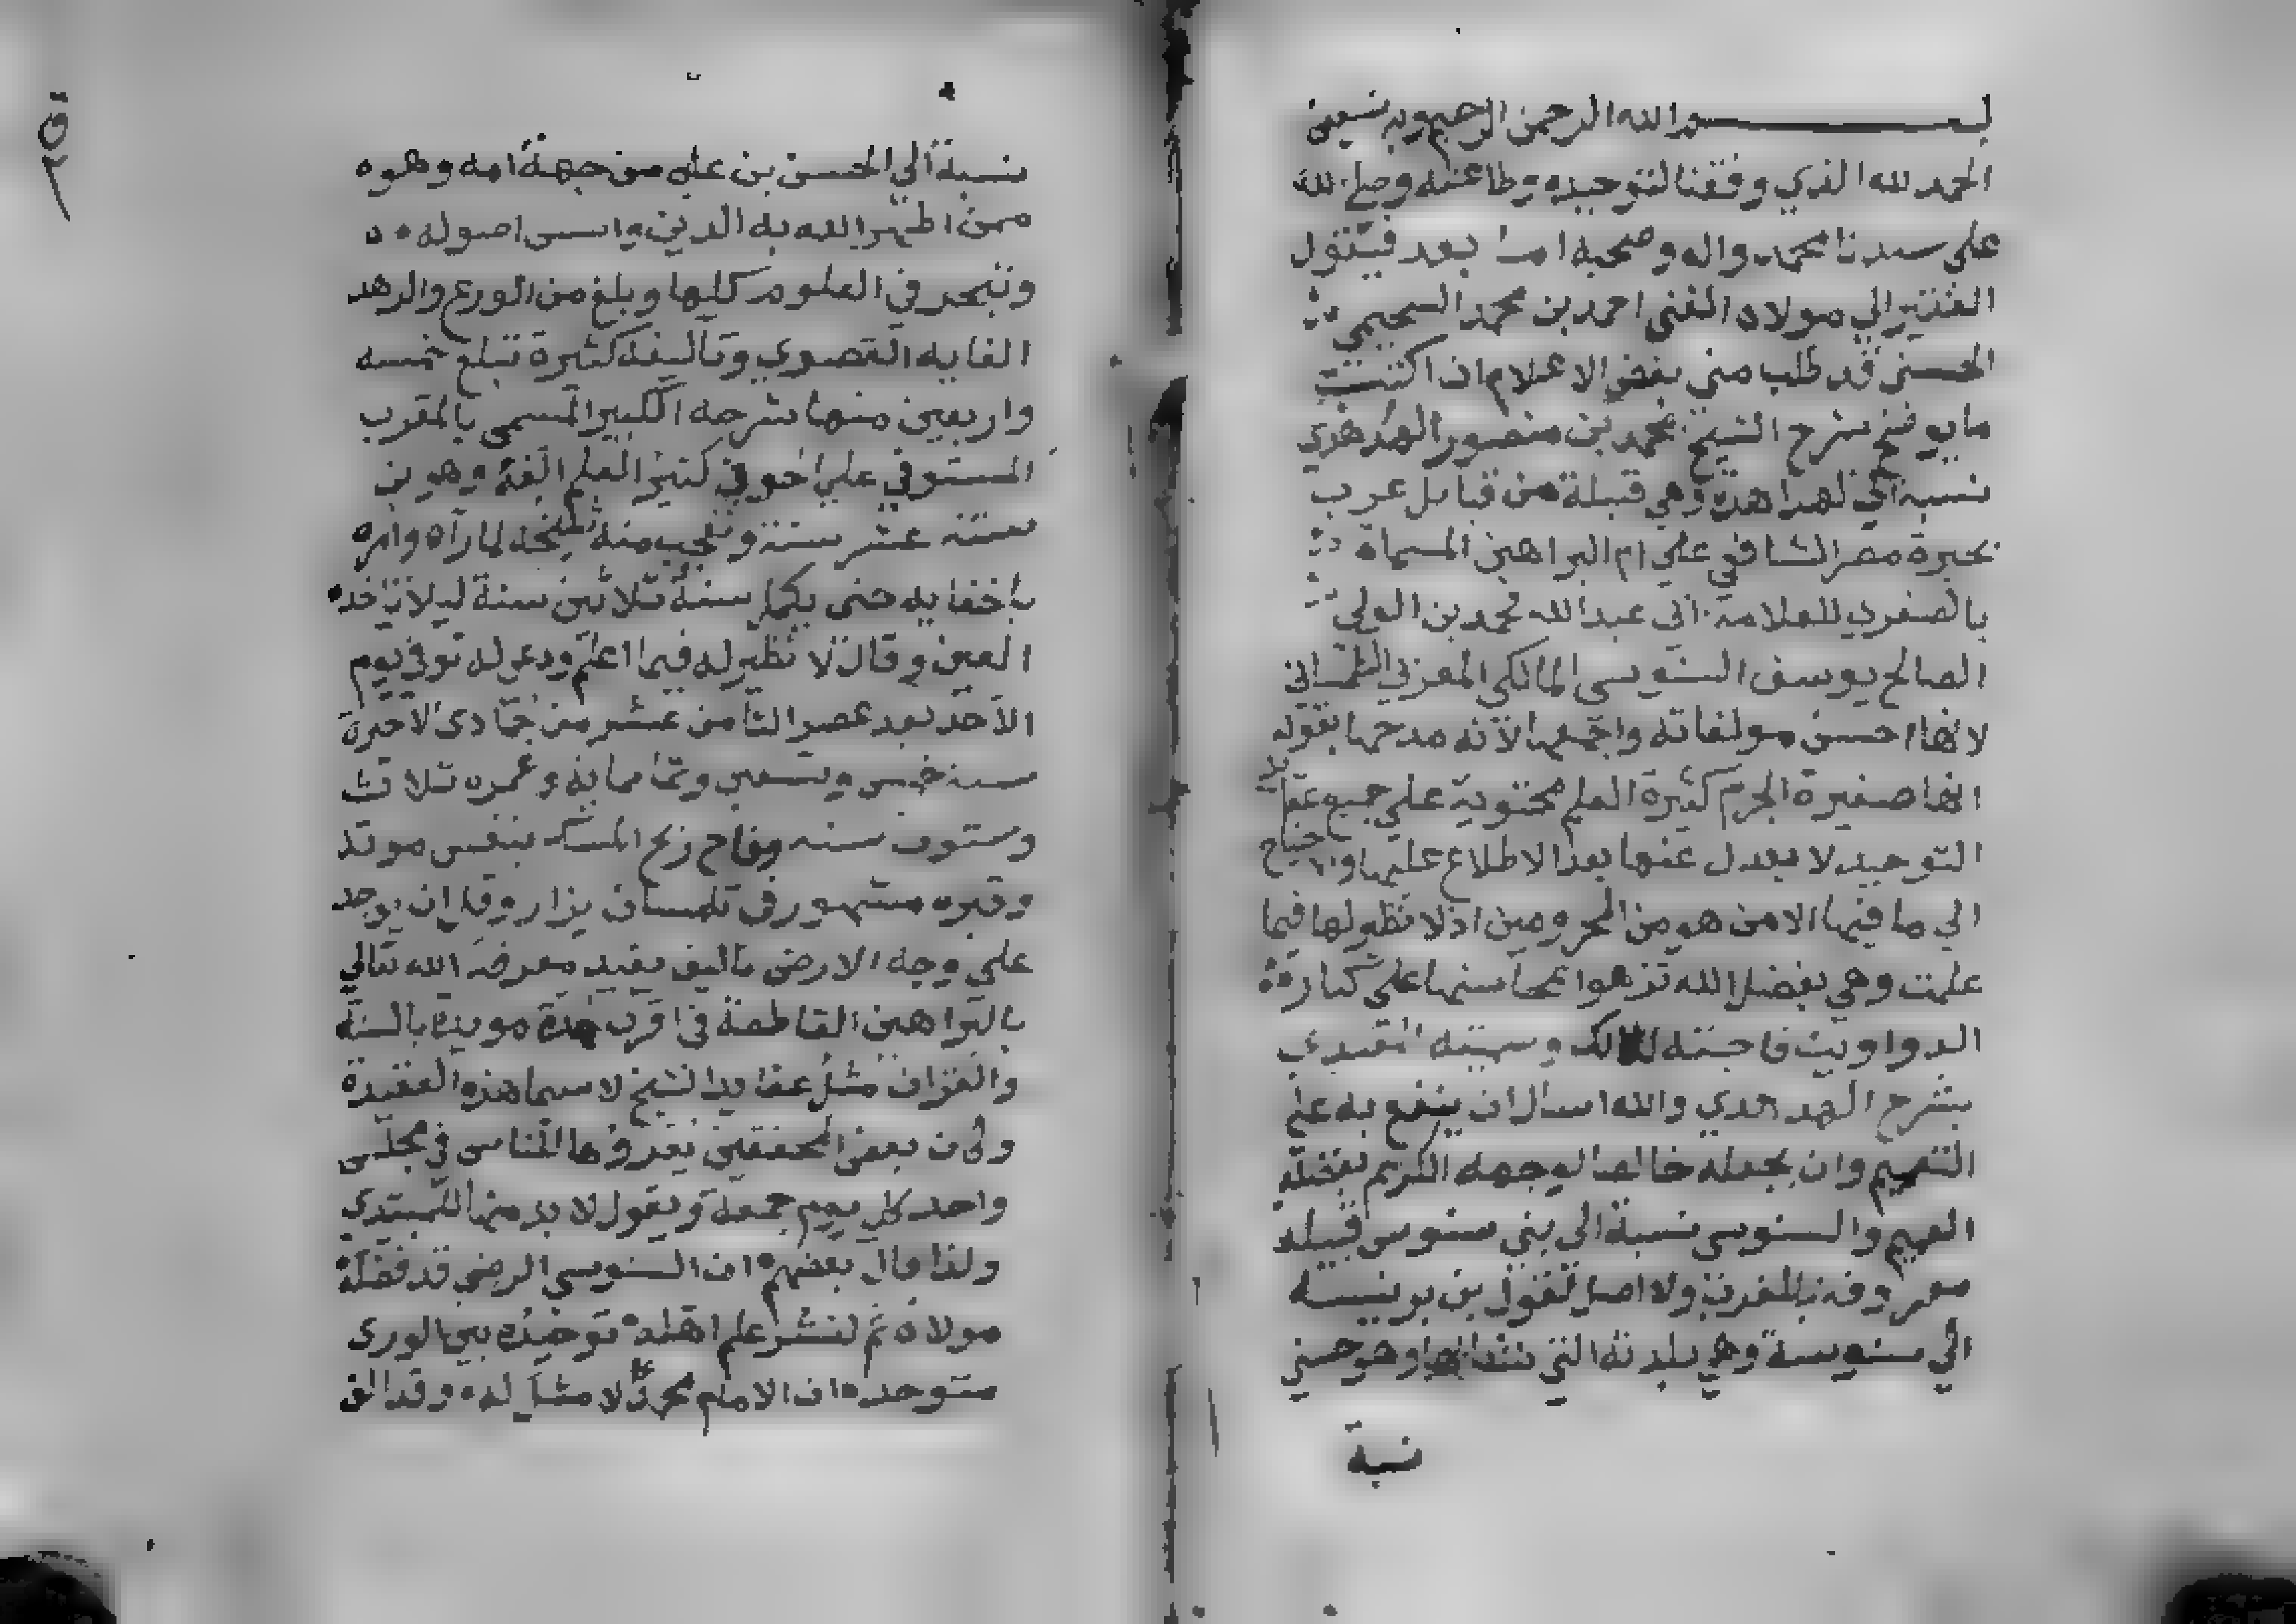 بسم الله الرحمن الرحيم وبه نستعين
الحمد لله الذي وفقنا لتوحيده وطاعته وصلى الله
على سيدنا محمد واله وصحبه اما بعد فيقول
الفقير الي مولاه الغني احمد بن محمد السحيمي
الحسني قد طلب مني بعض الاعلام ان اكتب
ما يوضح شرح الشيخ محمد بن منصور الهدهدي
نسبة الي لهداهدة وهي قبيلة من قبايل عرب
بحيرة مصر الشافعي علي ام البراهين المسماة
بالصغري للعلامة ابي عبد الله محمد بن الولي
الصالح يوسف السنوسي المالكي المغربي التلمساني
لانها احسن مولفاته واجمعها لانه مدحها بقوله
انها صغيرة الجرم كثيرة العلم محتوية علي جميع عقايد
التوحيد لا يعدل عنها بعد الاطلاع عليها والاحتياج
الي ما فيها الا من هو من المحرومين اذ لا نظير لها فيما
علمت وهي بفضل الله تزهوا بمحاسنها علي كبار
الدواوين فاجبته لذالك وسميته المقتدي
بشرح الهدهدي والله اسال ان ينفع به علي
التعميم وان يجعله خالصا لوجهه الكريم بفضله
العميم والسنوسي نسبة الي بني سنوس قبيلة
معروفة بالمغرب ولا اصل لقول بن بو نسبه
الي سنوسة وهي بلدته التي نشا بها وهو حسني
نسبة
نسبة الي الحسن بن علي من جهة امه وهو
ممن اظهر الله به الدين واسس اصوله
وتبحر في العلوم كلها وبلغ من الورع والزهد
الغاية القصوي وتأليفه كثيرة تبلغ خمسه
واربعين منها شرحه الكبير المسمى بالمقرب
المستوفي علي الحوفي كثير العلم الفه وهو بن
ستة عشر سنة وتعجب منه شيخه لما رآه وامره
باخفايه حتى يكمل سنه ثلاثين سنة ليلا تاخذه
العين وقال لا نظير له فيما اعلم ودعى له توفي يوم
الاحد بعد عصر الثامن عشر من جمادى الاخيرة
سنة خمس وتسعين وثمانماية وعمره ثلاث
وستون سنه وفاح ريح المسك بنفس موته
وقبره مشهور في تلمسان يزار وقل ان يوجد
علي وجه الارض تاليف يفيد معرفة الله تعالي
بالبراهين القاطعة في اقرب مدة مويدة بالسنة
والقران مثل عقايد الشيخ لا سيما هذه العقيدة
وكان بعض المحققين يقروها للناس في مجلس
واحد كل يوم جمعة ويقول لا بد منها للمبتدي
ولذا قال بعضهم ان السنوسي الرضي قد فضله
مولاه ثم لنشر علم اهله توحيده بين الورى
متوحده ان الامام محمدًا لا مثل له وقد الف